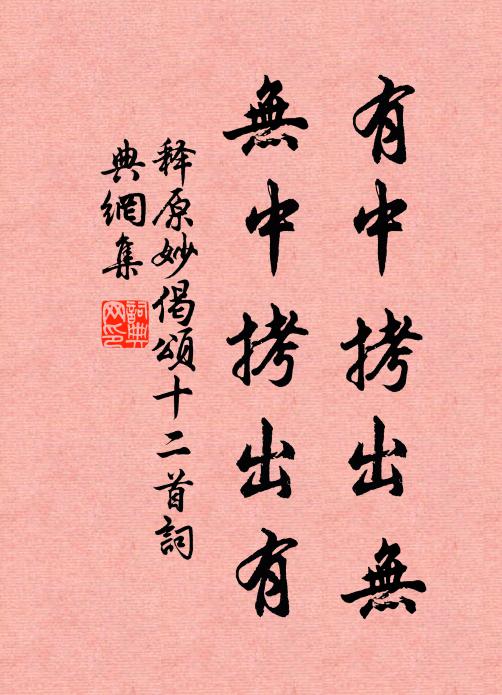 有中拷出無
無中拷出有
释原妙偈頌十二首詞
典網集
詞典
网印